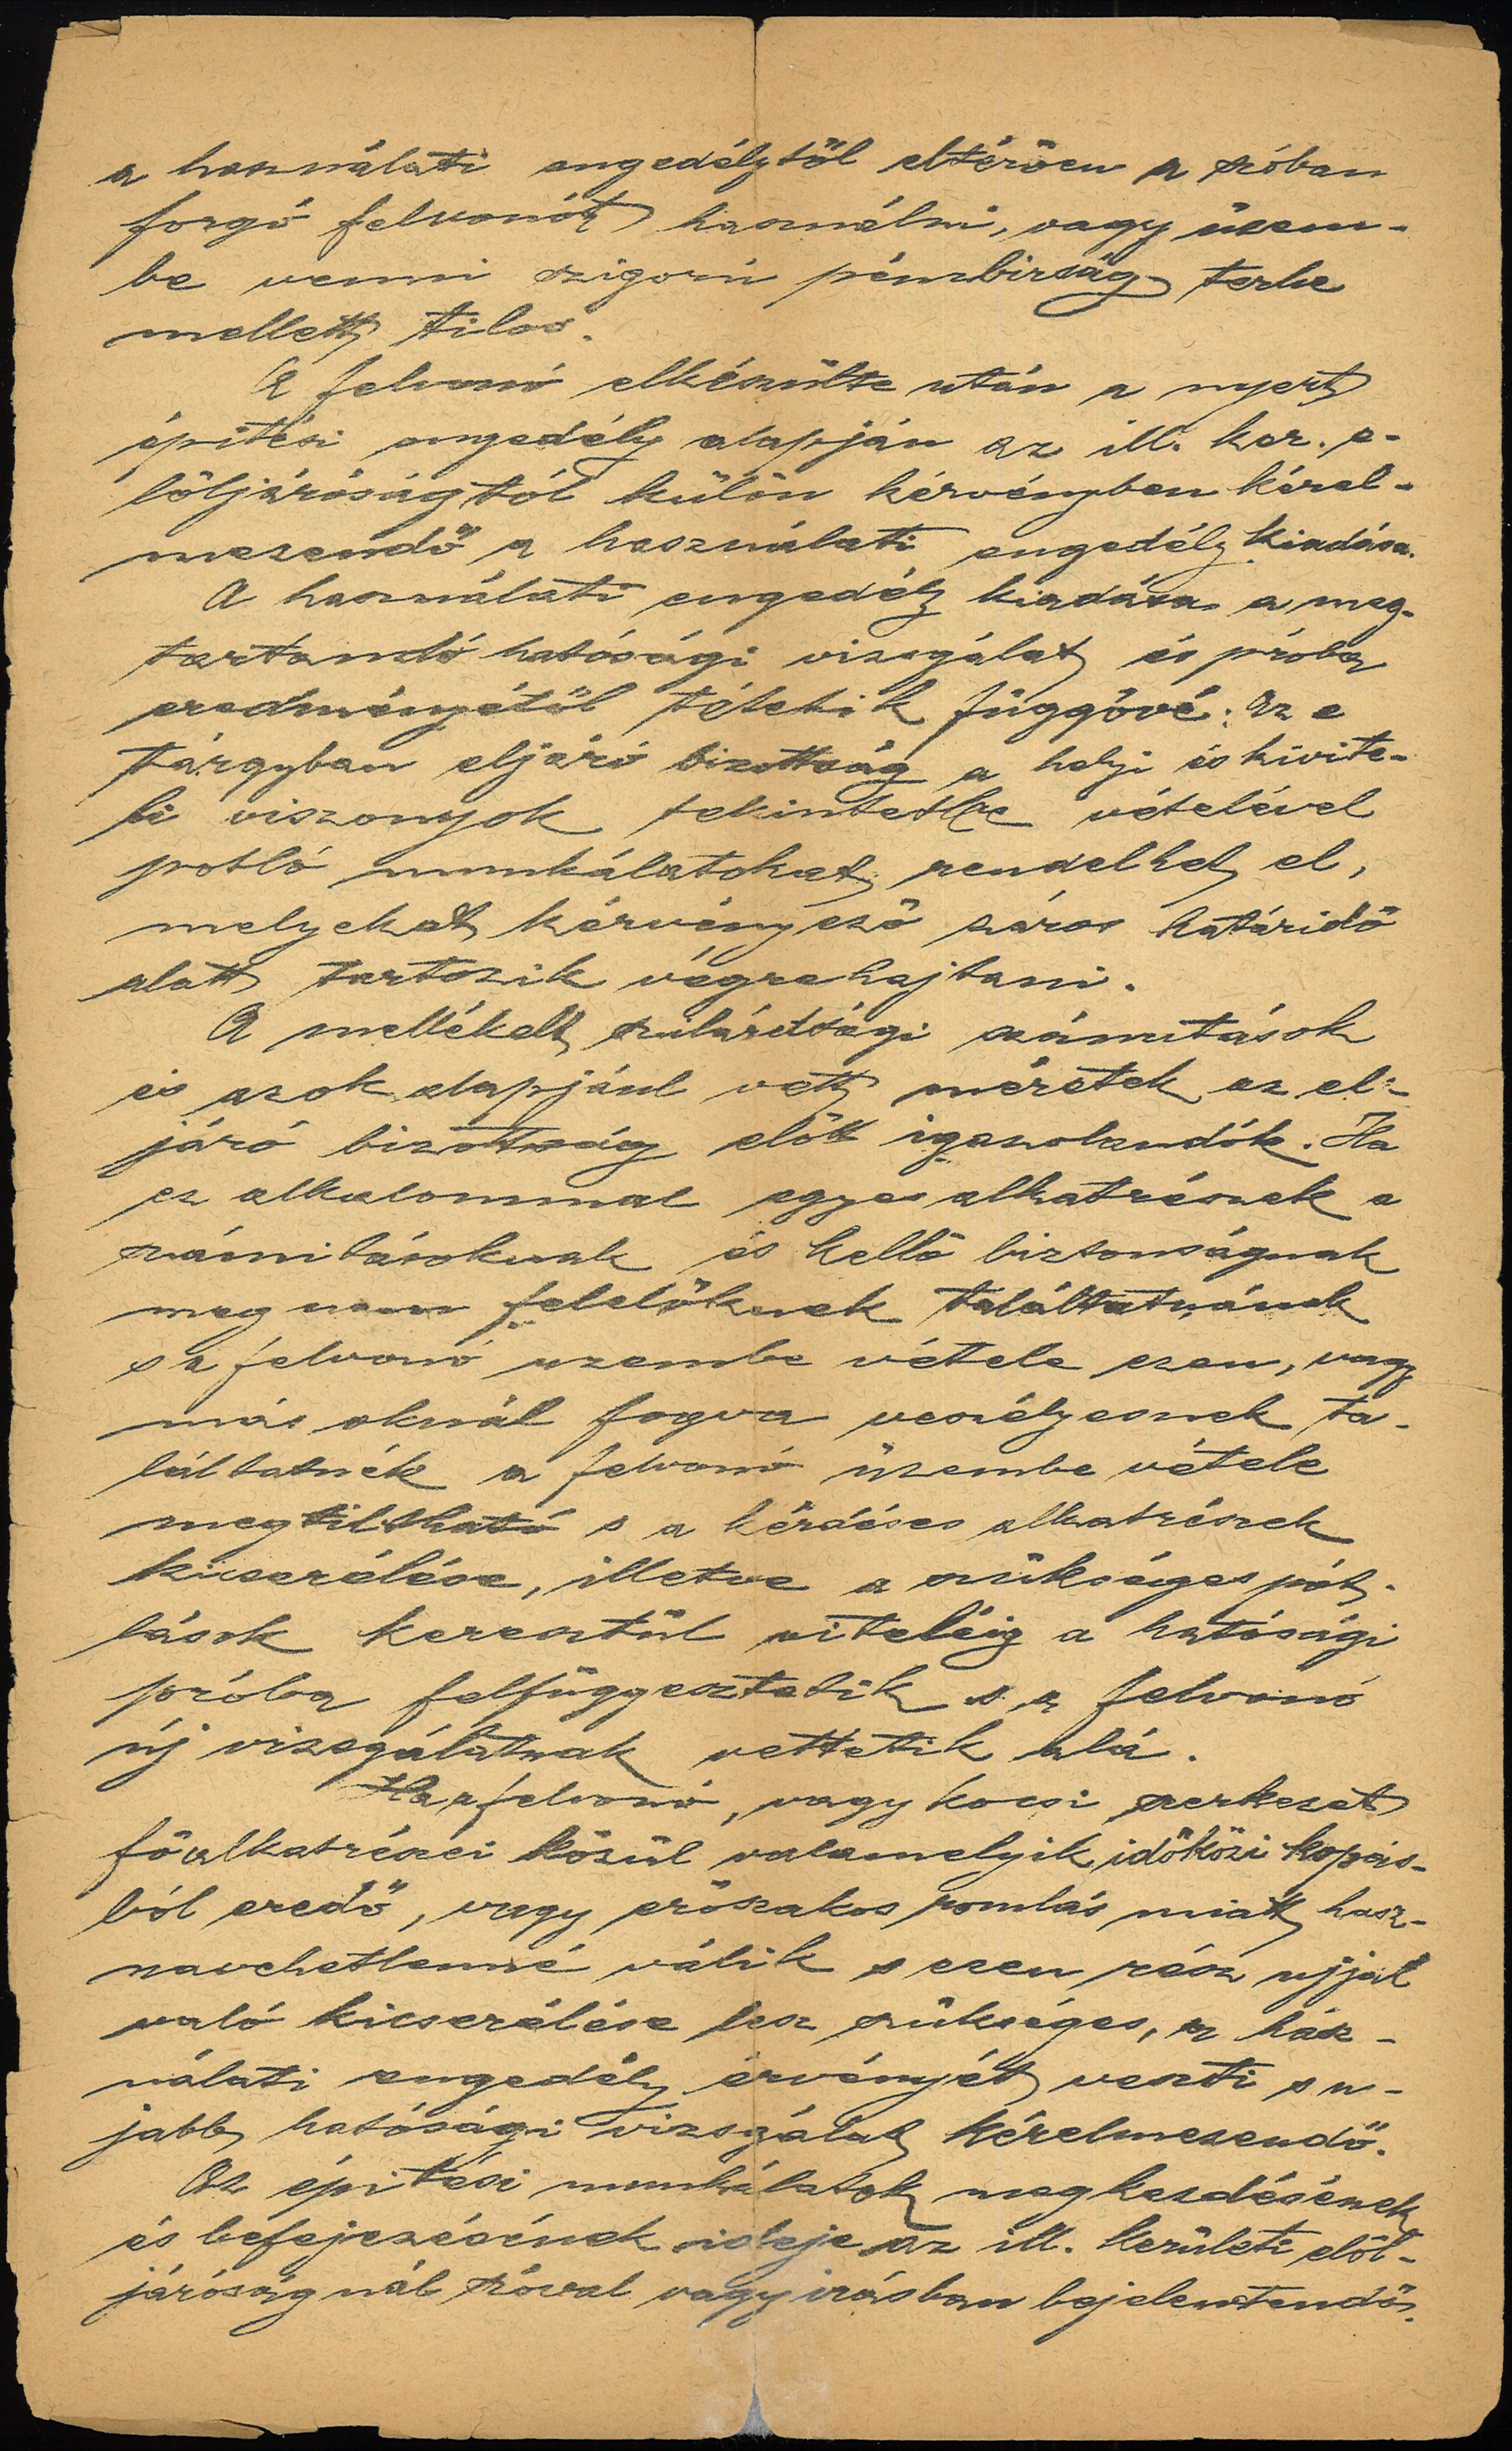 a használati engedélytől eltérően a szóban
forgó felvonót használni, vagy üzem-
be venni szigorú pénzbirság terhe
mellett tilos.
A felvonó elkészülte után a nyert
épitési engedély alapján az ill. ker. e-
löljáróságtól külön kérvényben kérel-
mezendő a használati engedély kiadása.
A használati engedély kiadása a meg-
tartandó hatósági vizsgálat és próba
eredményétől tétetik függővé. Az e
tárgyban eljáró bizottság a helyi és kivite-
li viszonyok tekintetbe vételével
potló munkálatokat rendelhet el,
melyeket kérvényező záros határidő
alatt tartozik végrehajtani.
A mellékelt szilárdsági számitások
és azok alapjául vett méretek az el-
járó bizottság előtt igazolandók. Ha
ez alkalommal egyes alkatrészek a
számitásoknak és kellő biztonságnak
meg nem felelőknek találtatnának
s a felvonó uzembe vétele ezen, vagy
más oknál fogva veszélyesnek ta-
láltatnék a felvonó üzembe vétele
megtiltható s a kérdéses alkatrészek
kicserélése, illetve a szükséges pót-
lások keresztül viteléig a hatósági
próba felfüggesztetik s a felvonó
új vizsgálatnak vettetik alá.
Ha a felvonó, vagy kocsi szerkezet
főalkatrészei közül valamelyik időközi kopás-
ból eredő, vagy erőszakos romlás miatt hasz-
navehetlenné válik s ezen rész ujjal
való kicserélése lesz szükséges, a hasz-
nálati engedély érvényét veszti s u-
jabb hatósági vizsgálat kérelmezendő.
Az épitési munkálatok megkezdésének
és befejezésének ideje az ill. kerületi elöl-
járóságnál szóval vagy irásban bejelentendő.